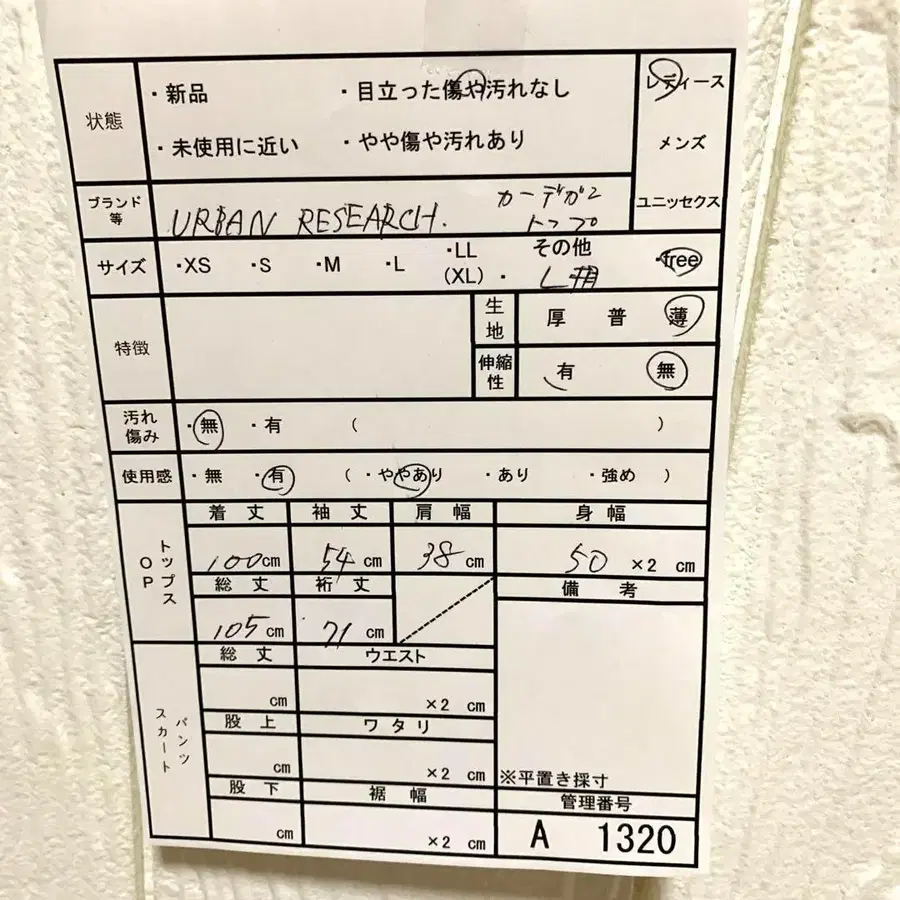 状態
・新品 ・目立った傷や汚れなし
・未使用に近い ・やや傷や汚れあり
レディース
メンズ
ユニッセクス
ブランド等
URBAN RESEARCH. カーデガン
トップ
サイズ ・XS ・S ・M ・L ・LL (XL) ・その他 ・free
特徴
生地 厚 普 薄
伸縮性 有 無
汚れ傷み ・無 ・有 ( )
使用感 ・無 ・有 ( ・ややあり ・あり ・強め )
トップス OP
着丈 袖丈 肩幅 身幅
100cm 54 cm 38 cm 50 ×2 cm
総丈 裄丈 備考
105cm 71 cm
パンツ スカート
総丈 ウエスト
cm ×2 cm
股上 ワタリ
cm ×2 cm
股下 裾幅
cm ×2 cm
※平置き採寸
管理番号
A 1320